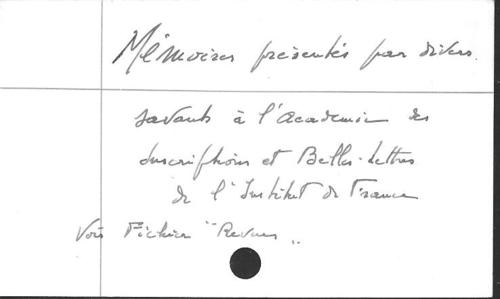 Mémoires présentés par divers
savants à l'Academie des
Inscriptions et Belles-Lettres
de l'Institut de France
Voir Fichier "Revues"